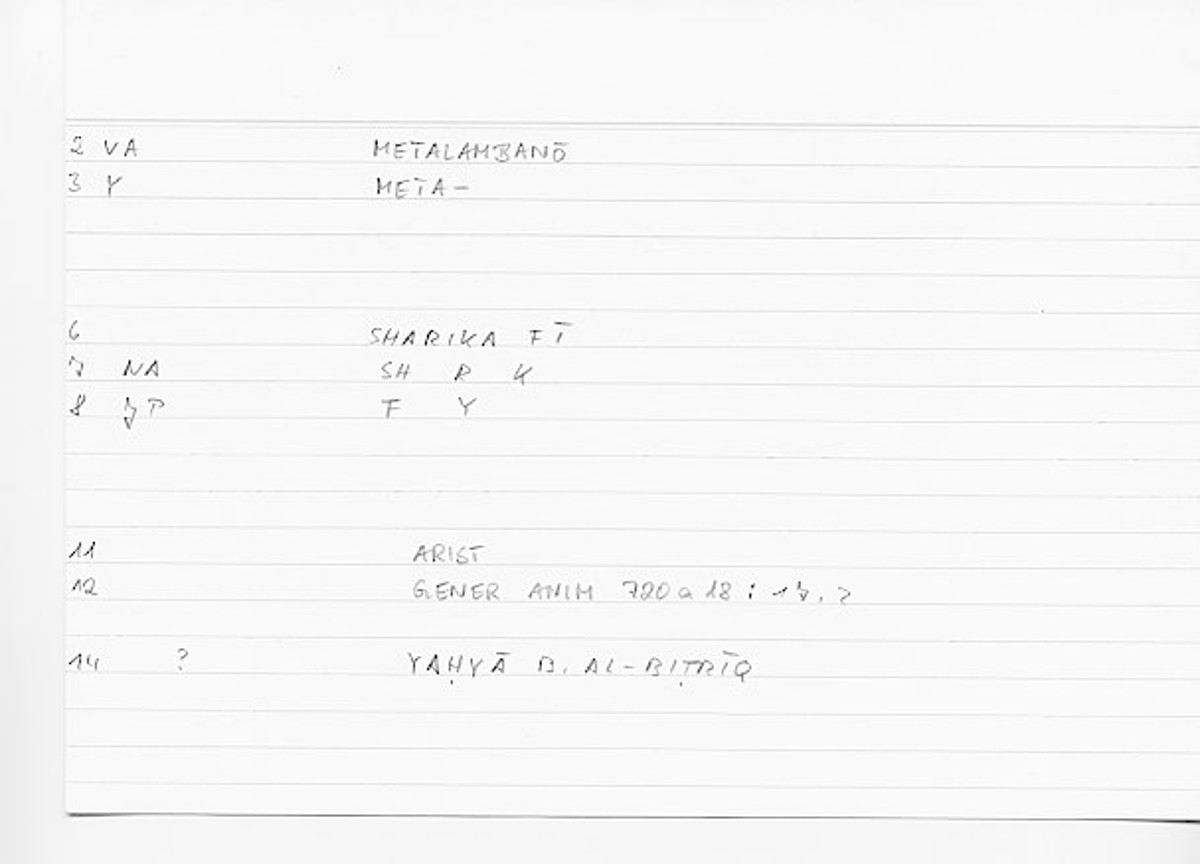 2 VA METALAMBANŌ
3 Y META-
6 SHARIKA FĪ
7 NA SH R K
8 P F Y
11 ARIST
12 GENER ANIM 720 a 18 :
14 ? YAḤYĀ B. AL-BIṬRĪQ